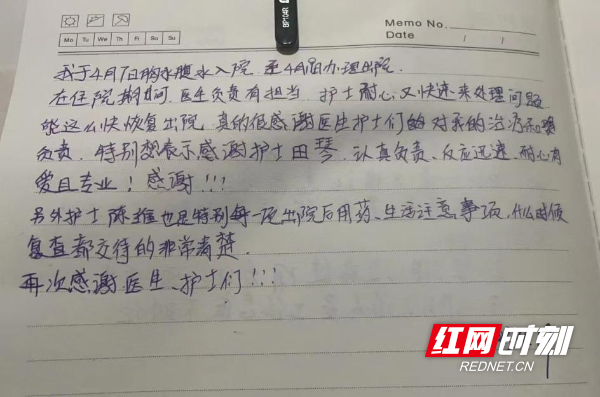 Memo No.
Mo Tu We Th Fr Sa Su
Date / /
我于4月7日胸水腹水入院 至4月 日办理出院.
在住院期间.医生负责有担当 护士耐心又快速来处理问题
能这么快恢复出院 真的很感谢医生护士们的对我的治疗和
负责.特别想表示感谢护士田琴.认真负责、反应迅速、耐心有
爱且专业!感谢!!!
另外护士陈 也是特别每一项出院后用药、生活注意事项,什么时候
复查都交待的非常清楚.
再次感谢医生、护士们!!!
红网时刻
REDNET.CN